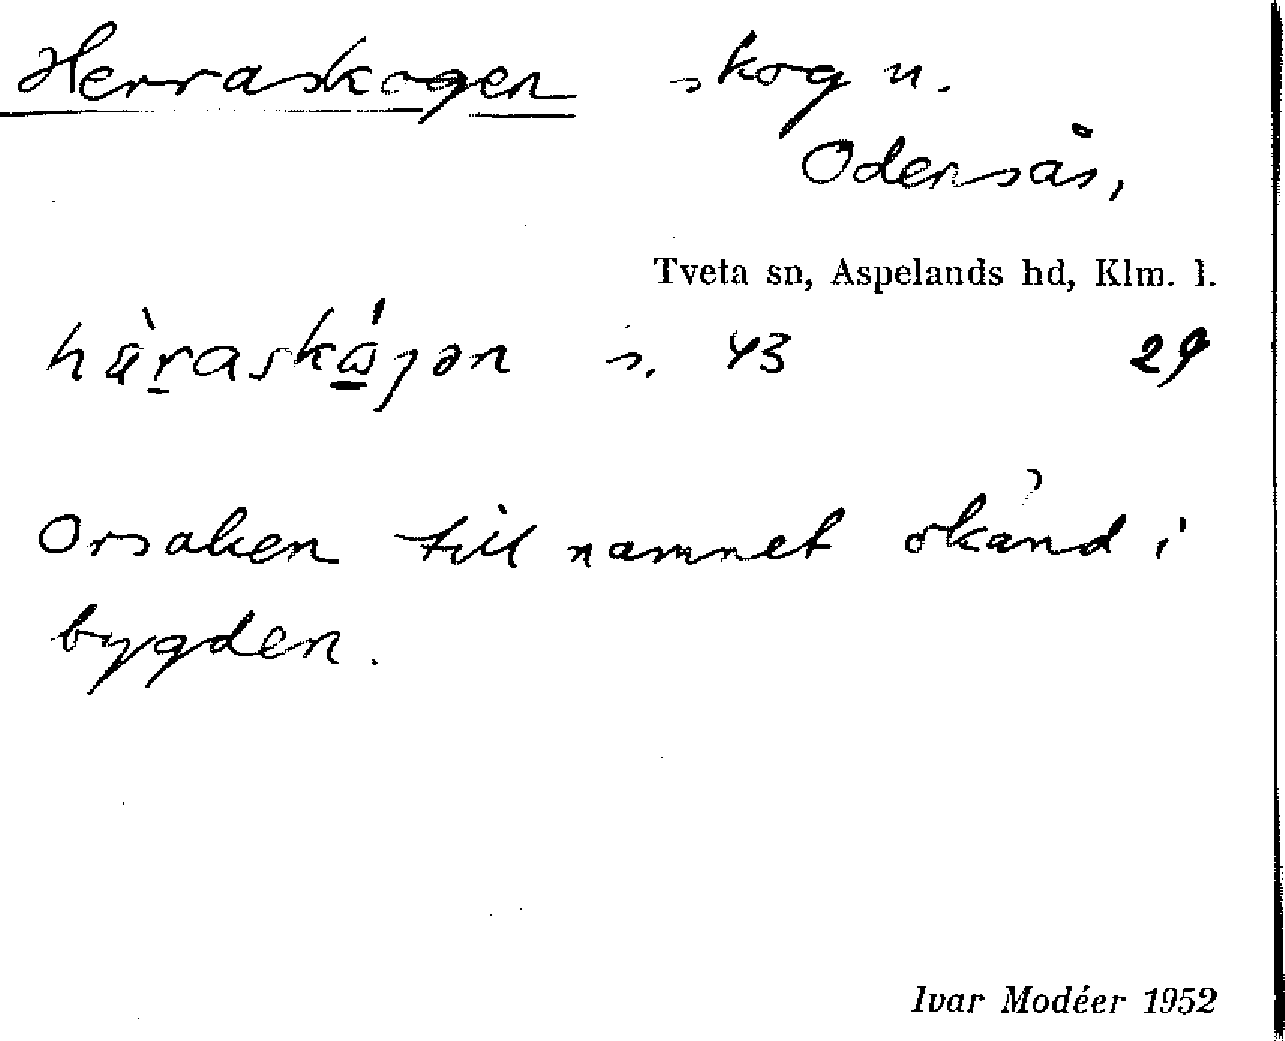 Herraskogen skog n.
Odensås,
Tveta sn, Aspelands hd, Klm. l.
s. 43 29
Orsaken till namnet okänd i
bygden.
Ivar Modéer 1952